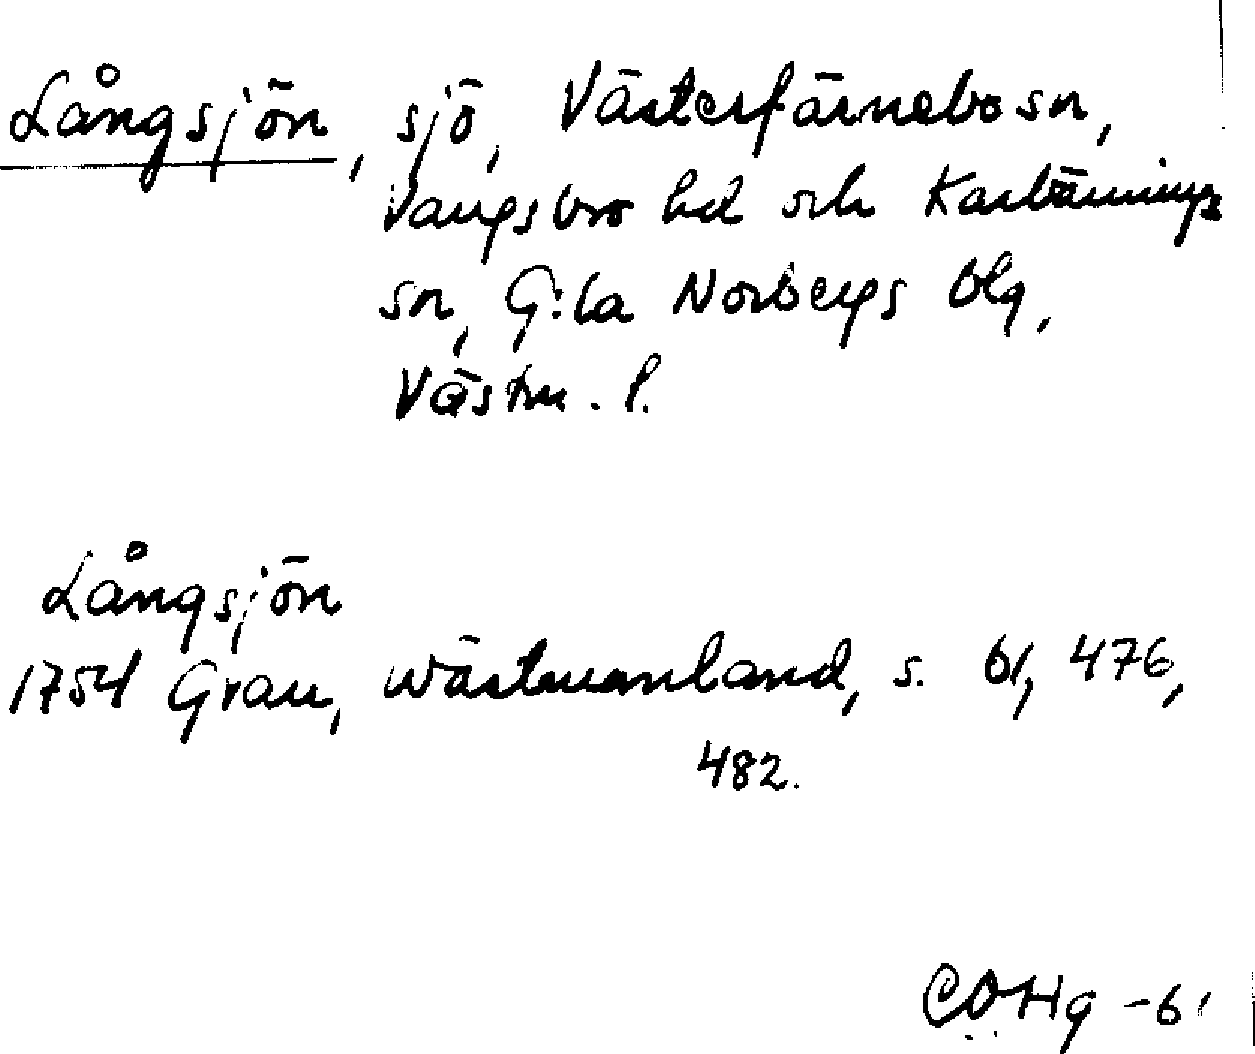 Långsjön, sjö, Västerfärnebo sn,
Vangsbro hd och Karbännings
sn, G:la Norbergs blg,
Västm. l.
Långsjön
1754 Grau, Wästmanland, s. 61, 476,
482.
COHg -61